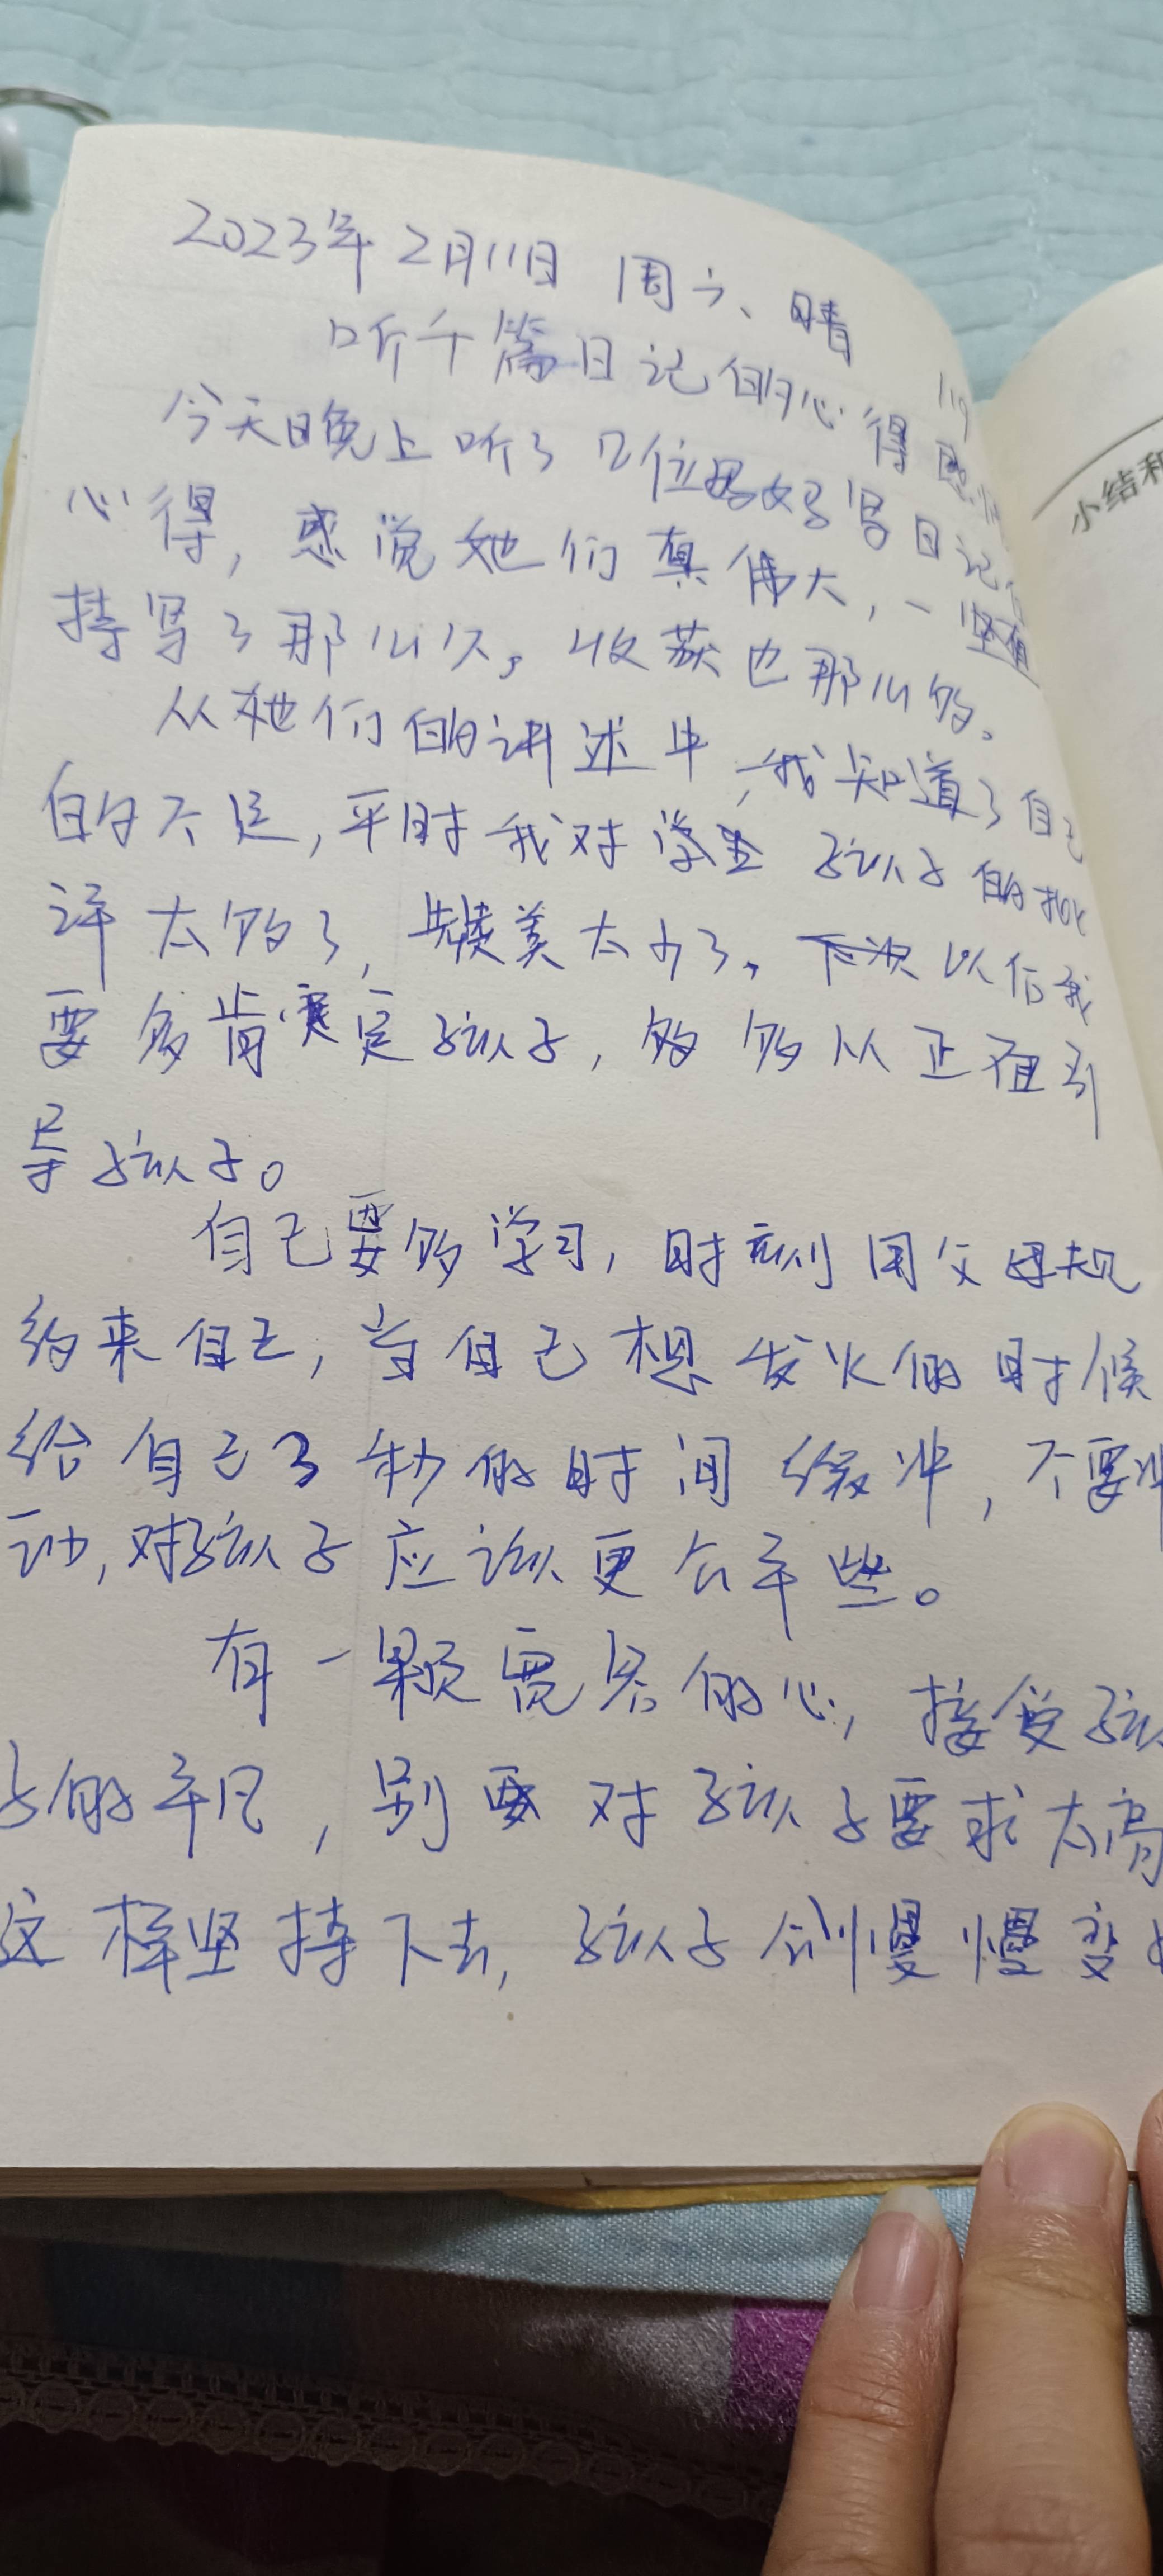 2023年2月11日 周六、晴
119
听千篇日记的心得感悟
今天晚上听了几位妈妈写日记
心得，感觉她们真伟大，一坚
持写了那么久，收获也那么多。
从她们的讲述中，我知道了自己
的不足，平时我对学生孩子的批
评太多了，赞美太少了，下次以后我
要多肯定孩子，多多从正面引
导孩子。
自己要多学习，时刻用父母规
约来自己，当自己想发火的时候
给自己3秒的时间缓冲，不要冲
动，对孩子应该更公平些。
有一颗宽容的心，接受孩
子的平凡，别要对孩子要求太高
这样坚持下去，孩子会慢慢变
小结和